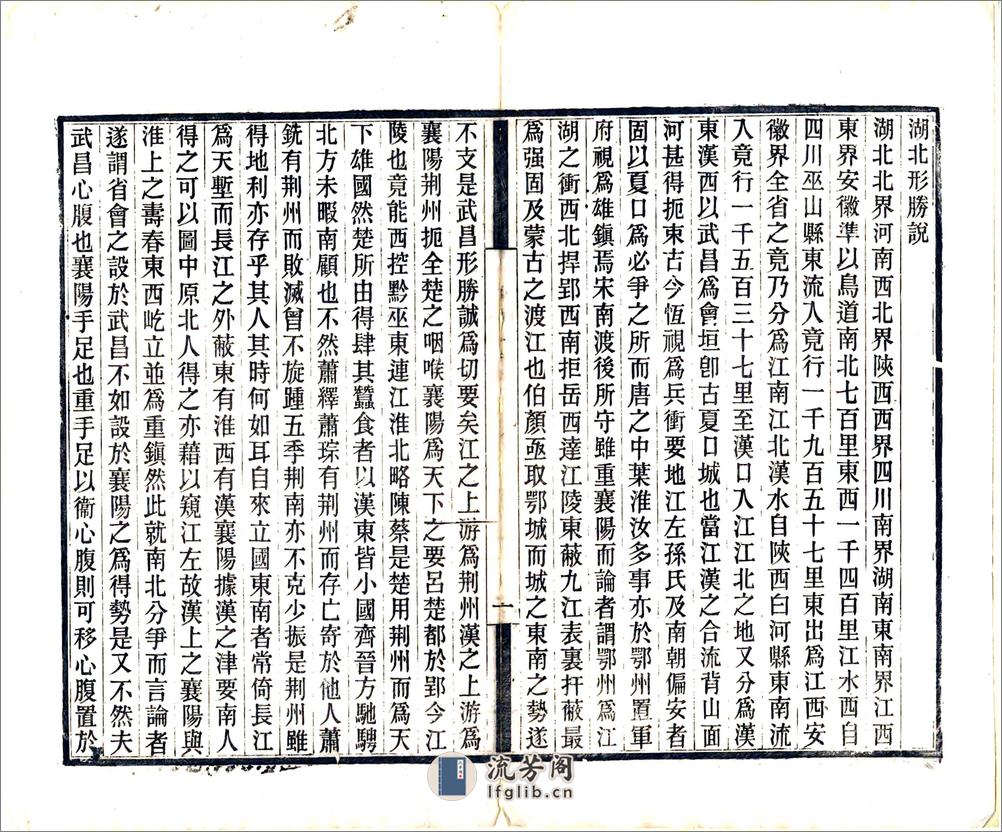 湖北形勝說
湖北北界河南西北界陝西西界四川南界湖南東南界江西
東界安徽準以鳥道南北七百里東西一千四百里江水西自
四川巫山縣東流入竟行一千九百五十七里東出爲江西安
徽界全省之竟乃分爲江南江北漢水自陝西白河縣東南流
入竟行一千五百三十七里至漢口入江江北之地又分爲漢
東漢西以武昌爲會垣卽古夏口城也當江漢之合流背山面
河甚得扼束古今恆視爲兵衝要地江左孫氏及南朝偏安者
固以夏口爲必爭之所而唐之中葉淮汝多事亦於鄂州置軍
府視爲雄鎮焉宋南渡後所守雖重襄陽而論者謂鄂州爲江
湖之衝西北捍郢西南拒岳西達江陵東蔽九江表裏扞蔽最
爲强固及蒙古之渡江也伯顏亟取鄂城而城之東南之勢遂
不支是武昌形勝誠爲切要矣江之上游爲荆州漢之上游爲
襄陽荆州扼全楚之咽喉襄陽爲天下之要呂楚都於郢今江
陵也竟能西控黔巫東連江淮北略陳蔡是楚用荆州而爲天
下雄國然楚所由得肆其蠶食者以漢東皆小國齊晉方馳騁
北方未暇南顧也不然蕭釋蕭琮有荆州而存亡寄於他人蕭
銑有荆州而敗滅曾不旋踵五季荆南亦不克少振是荆州雖
得地利亦存乎其人其時何如耳自來立國東南者常倚長江
爲天塹而長江之外蔽東有淮西有漢襄陽據漢之津要南人
得之可以圖中原北人得之亦藉以窺江左故漢上之襄陽與
淮上之壽春東西屹立並爲重鎮然此就南北分爭而言論者
遂謂省會之設於武昌不如設於襄陽之爲得勢是又不然夫
武昌心腹也襄陽手足也重手足以衞心腹則可移心腹置於
一
流芳阁
lfglib.cn